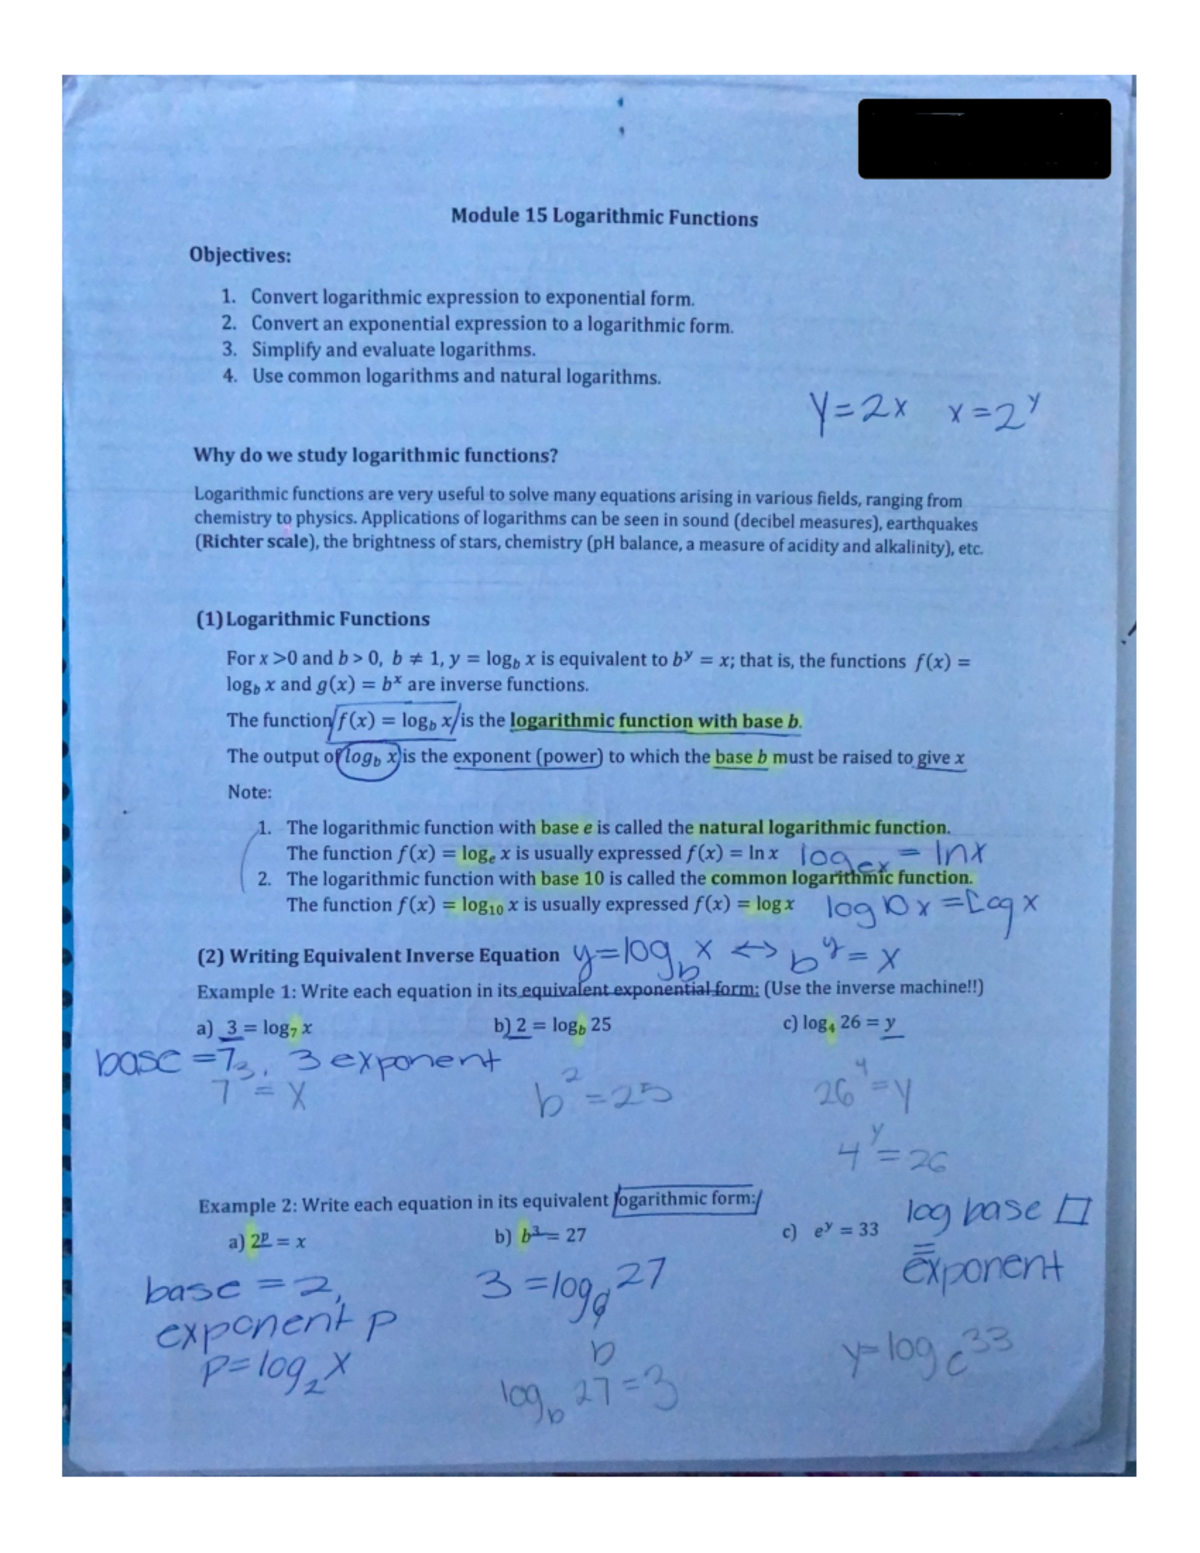 Module 15 Logarithmic Functions
Objectives:
1. Convert logarithmic expression to exponential form.
2. Convert an exponential expression to a logarithmic form.
3. Simplify and evaluate logarithms.
4. Use common logarithms and natural logarithms.
y=2x x=2^y
Why do we study logarithmic functions?
Logarithmic functions are very useful to solve many equations arising in various fields, ranging from
chemistry to physics. Applications of logarithms can be seen in sound (decibel measures), earthquakes
(Richter scale), the brightness of stars, chemistry (pH balance, a measure of acidity and alkalinity), etc.
(1) Logarithmic Functions
For x >0 and b > 0, b ≠ 1, y = log_b x is equivalent to b^y = x; that is, the functions f(x) =
log_b x and g(x) = b^x are inverse functions.
The function f(x) = log_b x is the logarithmic function with base b.
The output of log_b x is the exponent (power) to which the base b must be raised to give x
Note:
1. The logarithmic function with base e is called the natural logarithmic function.
The function f(x) = log_e x is usually expressed f(x) = ln x log_ex = lnx
2. The logarithmic function with base 10 is called the common logarithmic function.
The function f(x) = log_10 x is usually expressed f(x) = log x log 10 x = Log x
(2) Writing Equivalent Inverse Equation y=log_b x ↔ b^y = x
Example 1: Write each equation in its equivalent exponential form: (Use the inverse machine!!)
a) 3 = log_7 x b) 2 = log_b 25 c) log_4 26 = y
base = 7, 3 exponent
7^3 = x b^2 = 25 26^4 = y
4^y = 26
Example 2: Write each equation in its equivalent logarithmic form:
log base □
a) 2^p = x b) b^3 = 27 c) e^y = 33
= exponent
base = 2, 3 = log 27
exponent p
b
p = log_2 x y = log_e 33
log_b 27 = 3